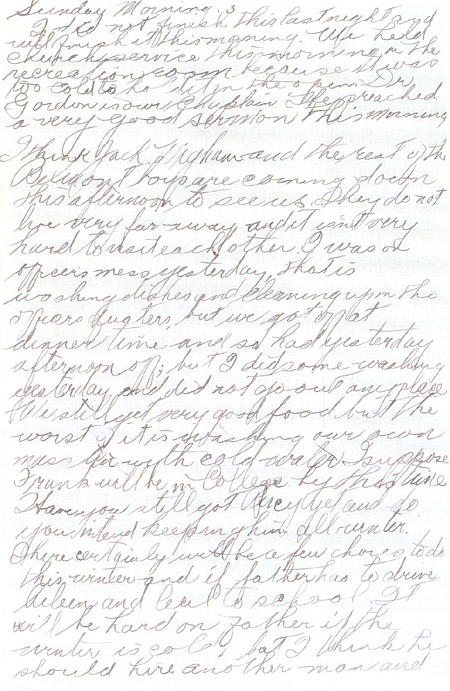 Sunday Morning. 3
I did not finish this last night and
will finish it this morning. We held
church service this morning in the
recreation room because it was
too cold to be in the open. Dr.
Gordon is our Chaplain. He preached
a very good sermon this morning
I think Jack and the rest of the
boys are coming down
this afternoon to see us. They do not
live very far away and it isn't very
hard to visit each other. I was on
officers mess yesterday, that is
washing dishes and cleaning up in the
officers quarters, but we got off at
dinner time and so had yesterday
afternoon off; but I did some washing
yesterday and did not go out any place
We still get very good food but the
worst of it is washing our own
mess tin with cold water. I suppose
Frank will be in College by this time
Have you still got Percy yet and do
you intend keeping him all winter.
There certainly will be a few chores to do
this winter and if father has to drive
Aileen and Cecil to school. It
will be hard on father if the
winter is cold, but I think he
should hire another man and